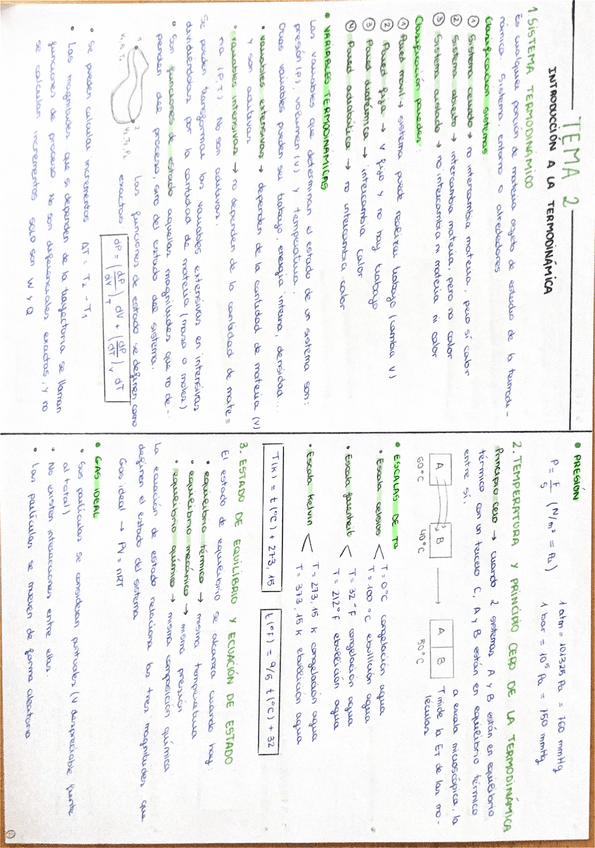 TEMA 2
INTRODUCCIÓN A LA TERMODINÁMICA
1. SISTEMA TERMODINÁMICO
Es cualquier porción de materia objeto de estudio de la termodi-
námica. Sistema, entorno o alrededores
Clasificación sistemas
① Sistema cerrado → no intercambia materia, pero sí calor
② Sistema abierto → intercambia materia, pero no calor
③ Sistema aislado → no intercambia ni materia ni calor
Clasificación paredes:
① Pared móvil → sistema puede realizar trabajo (cambia V)
② Pared fija → V fijo y no hay trabajo
③ Pared diatérmica → intercambia calor
④ Pared adiabática → no intercambia calor
• VARIABLES TERMODINÁMICAS
Las variables que determinan el estado de un sistema son:
presión (P), volumen (V) y temperatura.
Otras variables pueden ser trabajo, energía interna, densidad...
• variables extensivas → dependen de la cantidad de materia (V)
y son aditivas.
• variables intensivas → no dependen de la cantidad de mate-
ria (P,T). No son aditivas.
Se pueden transformar las variables extensivas en intensivas
dividiéndolas por la cantidad de materia (masa o moles).
• Son funciones de estado aquellas magnitudes que no de-
penden del proceso, sino del estado del sistema.
Las funciones de estado se definen como
exactas:
dP = (dP/dV)T dV + (dP/dT)V dT
1
2
V1, P1, T1
V2, P2, T2
• Se pueden calcular incrementos ΔT = T2 - T1
• Las magnitudes que si dependen de la trayectoria se llaman
funciones de proceso. No son diferenciales exactas, y no
se calculan incrementos. Solo son W y Q
• PRESIÓN
P = F/S (N/m² = Pa)
1 atm = 101325 Pa = 760 mmHg
1 bar = 10⁵ Pa = 750 mmHg
2. TEMPERATURA Y PRINCIPIO CERO DE LA TERMODINÁMICA
Principio cero → cuando 2 sistemas A y B están en equilibrio
térmico con un tercero C, A y B están en equilibrio térmico
entre sí.
A B → A B
60°C 40°C 50°C
a escala microscópica, la
T mide la ET de las mo-
léculas
• ESCALAS DE Tª
• Escala celsius < T = 0°C congelación agua
T = 100°C ebullición agua
• Escala farenheit < T = 32°F congelación agua
T = 212°F ebullición agua
• Escala kelvin < T = 273,15 K congelación agua
T = 373,15 K ebullición agua
T(K) = t(°C) + 273,15
t(°F) = 9/5 t(°C) + 32
3. ESTADO DE EQUILIBRIO Y ECUACIÓN DE ESTADO
El estado de equilibrio se alcanza cuando hay:
• equilibrio térmico → misma temperatura
• equilibrio mecánico → misma presión
• equilibrio químico → misma composición química
La ecuación de estado relaciona las tres magnitudes que
definen el estado del sistema
Gas ideal → PV = nRT
• GAS IDEAL
• Sus partículas se consideran puntuales (V despreciable frente
al total)
• No existen interacciones entre ellas
• Las partículas se mueven de forma aleatoria